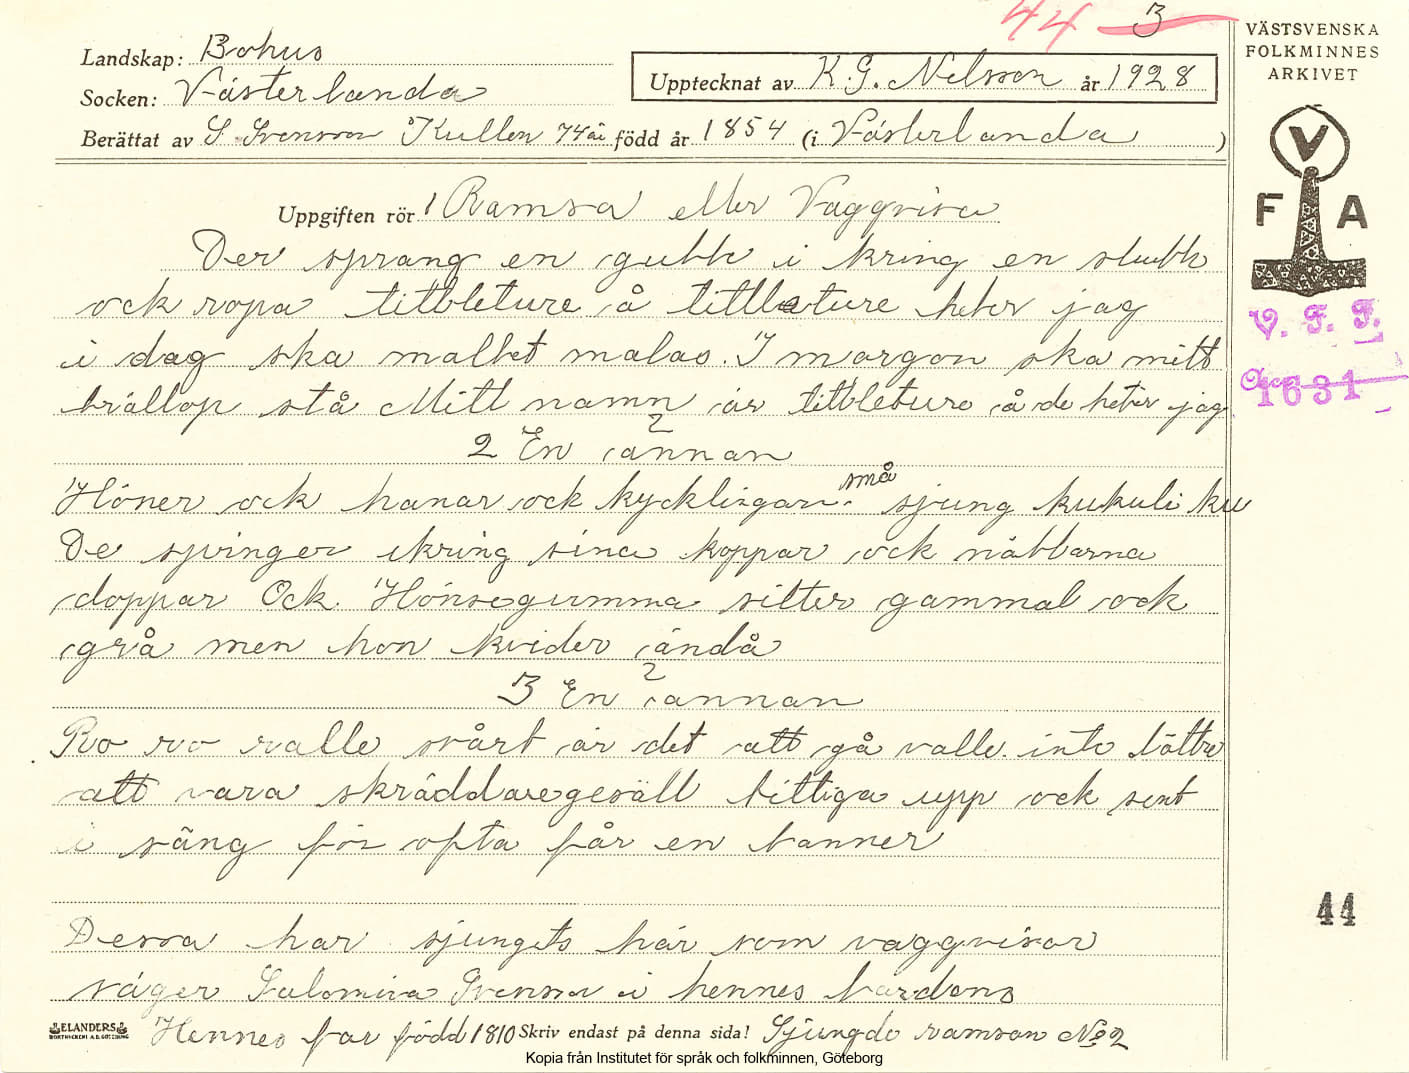 44 3
VÄSTSVENSKA
FOLKMINNES
ARKIVET
Landskap: Bohus
Socken: Västerlanda
Upptecknat av K. G. Nelsson år 1928
Berättat av S. Svensson Kullen 74 år född år 1854 (i Västerlanda)
V
F A
Uppgiften rör 1 Ramsa eller Vaggvisa
Der sprang en gubbe i kring en stubbe
ock ropa titteleture å titteleture heter jag
i dag ska maltet malas. I morgon ska mitt
bröllop stå Mitt namn är titteleture å de heter jag
V. F. F.
1631
2 En annan
Höner ock hanar ock kycklingar små sjung kukuli ku
De springer ikring sina koppar ock näbbarna
doppar Ock Hönsegumma sitter gammal ock
grå men hon kvider ändå
3 En annan
Ro ro ralle svårt är det att gå valle inte bättre
att vara skräddaregesäll bittiga upp ock sent
i säng för ofta får en banner
44
Dessa har sjungits här som vaggvisor
säger Salomina Svensson i hennes barndoms
ELANDERS
BOKTRYCKERI A.B. GÖTEBORG
Hennes far född 1810 Skriv endast på denna sida! Sjungde ramsan No 2
Kopia från Institutet för språk och folkminnen, Göteborg